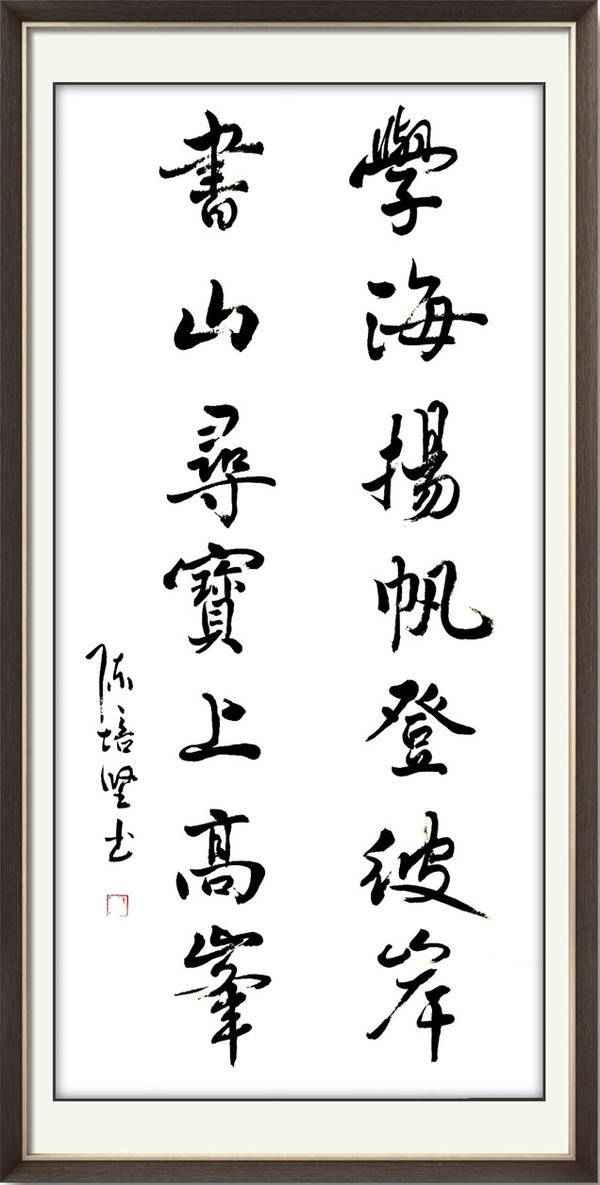 學海揚帆登彼岸
書山尋寶上高峯
陈培坚书